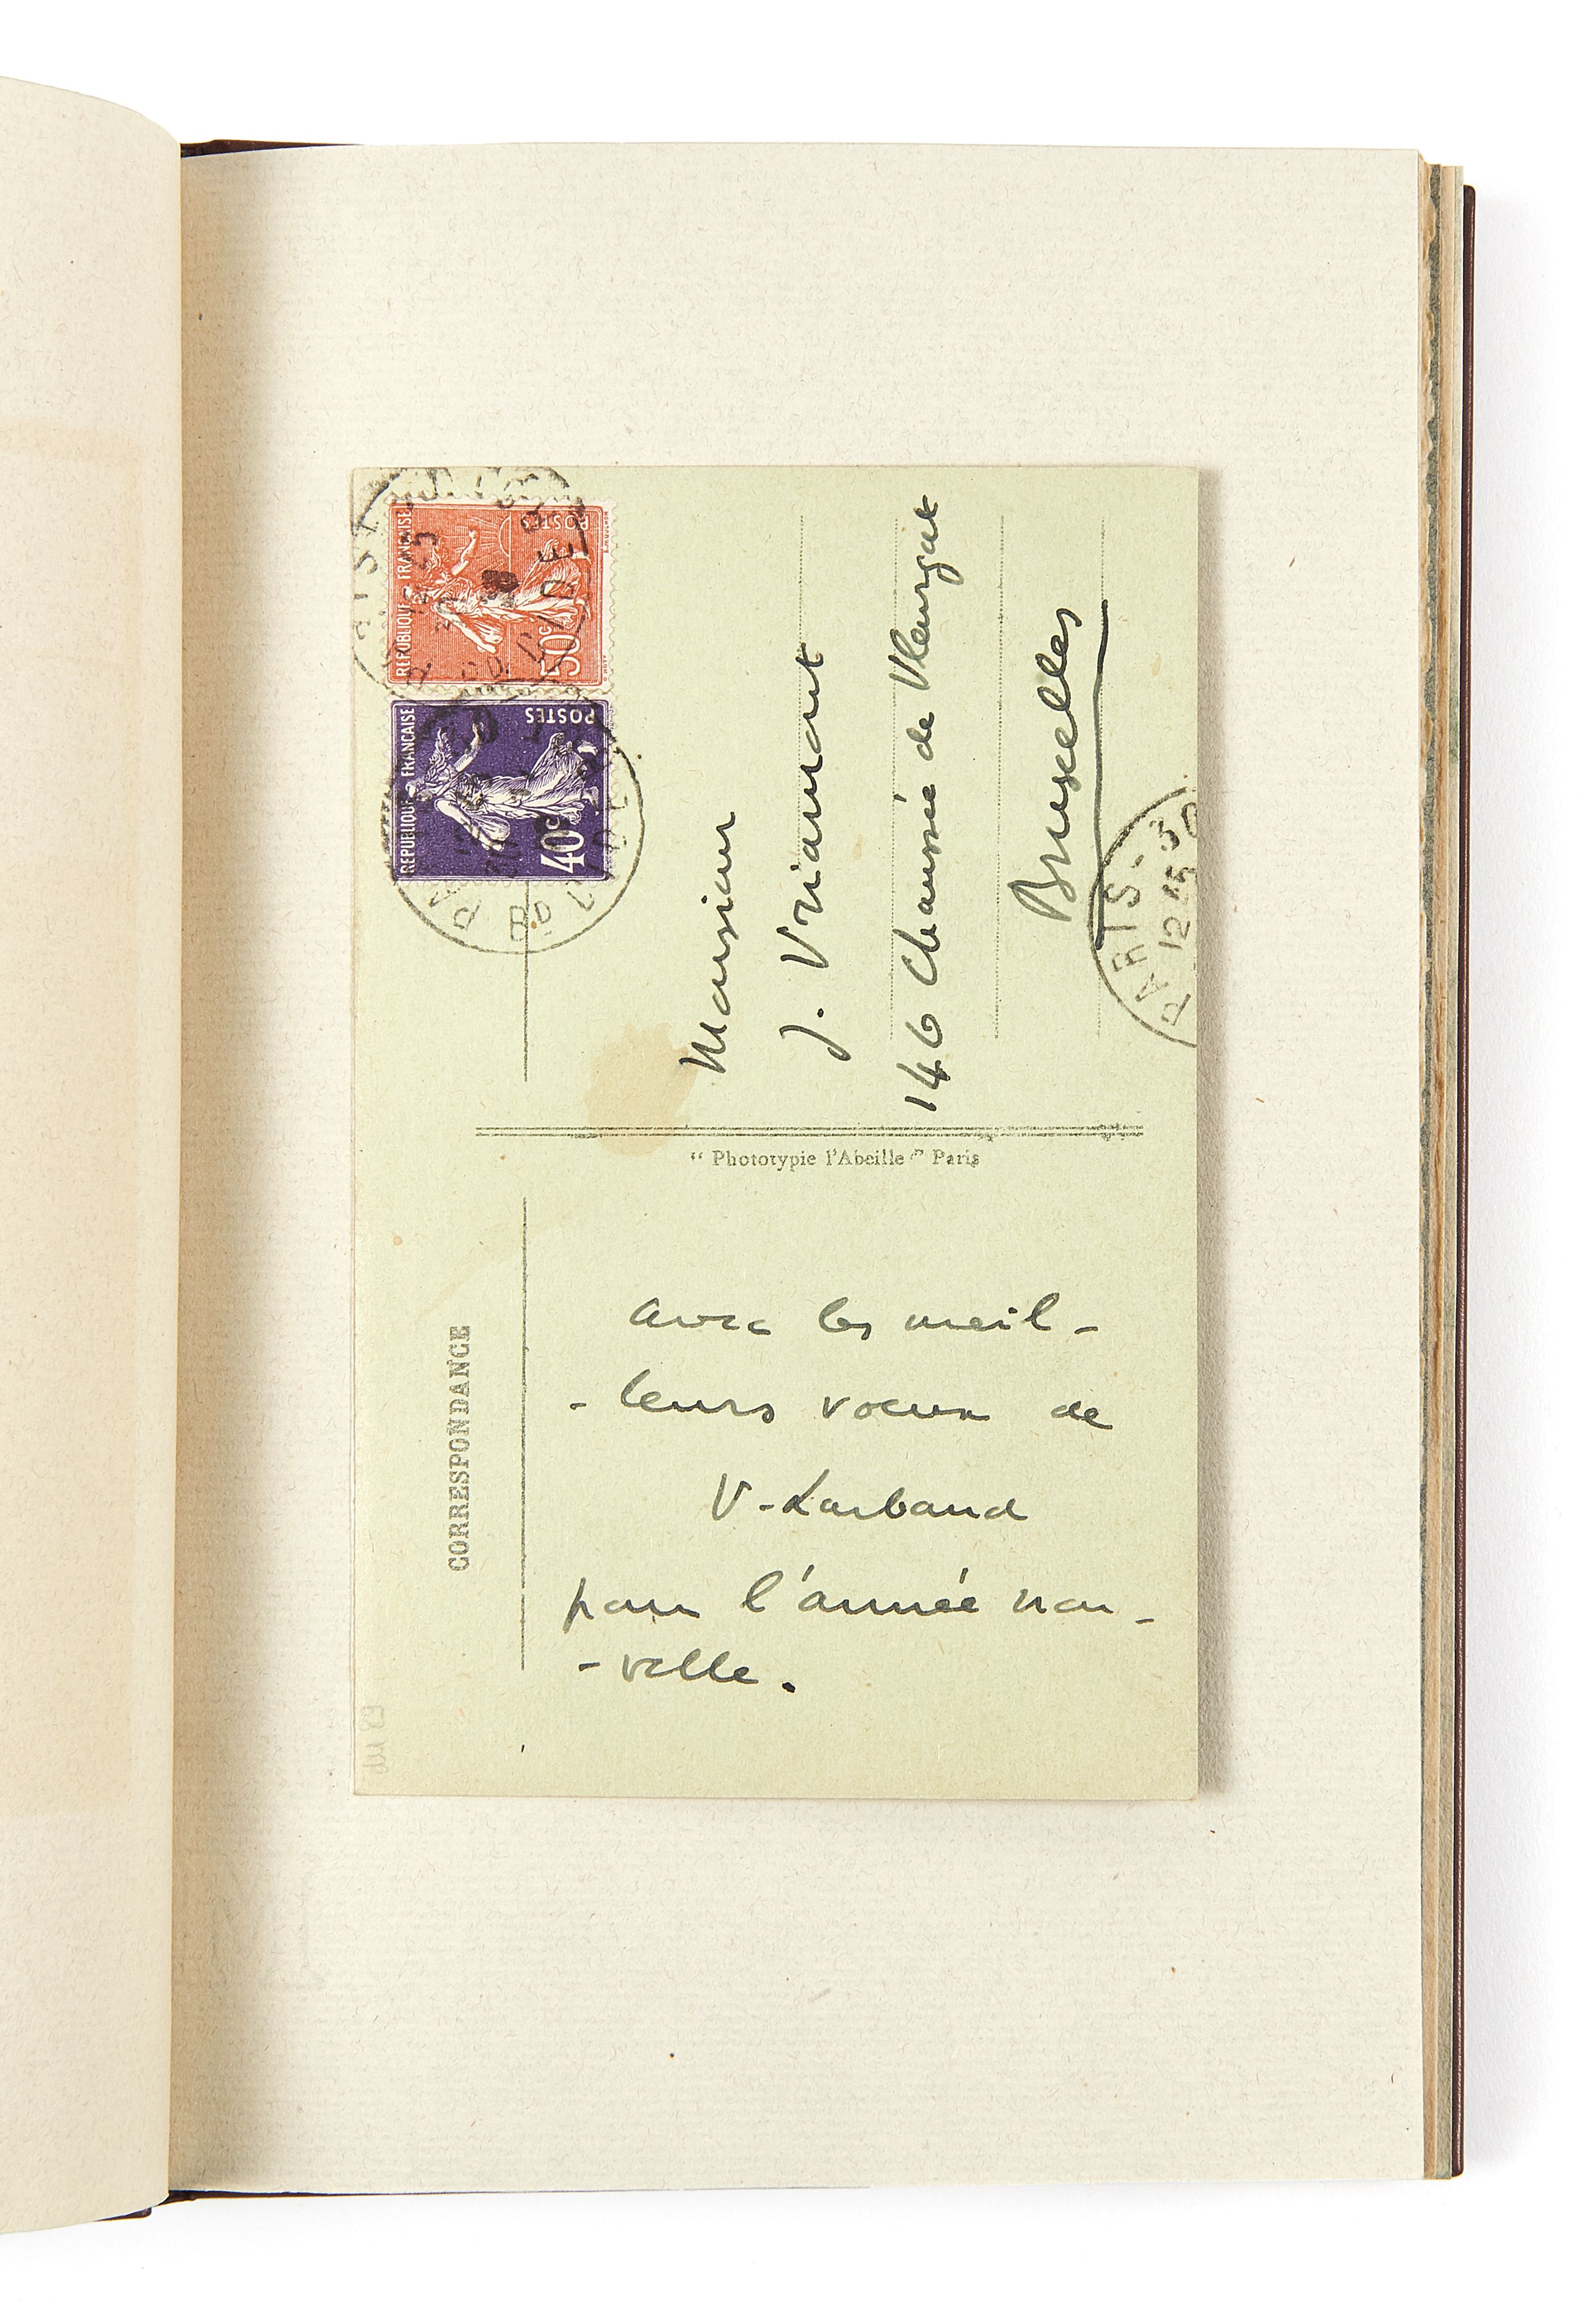 REPUBLIQUE FRANCAISE
50c
POSTES
REPUBLIQUE FRANCAISE
40c
POSTES
Monsieur
J. Vriamont
146 Chaussée de Vleurgat
Bruxelles
PARIS-30
12 45
"Phototypie l'Abeille" Paris
CORRESPONDANCE
avec les meil-
-leurs voeux de
V. Larbaud
pour l'année nou-
-velle.